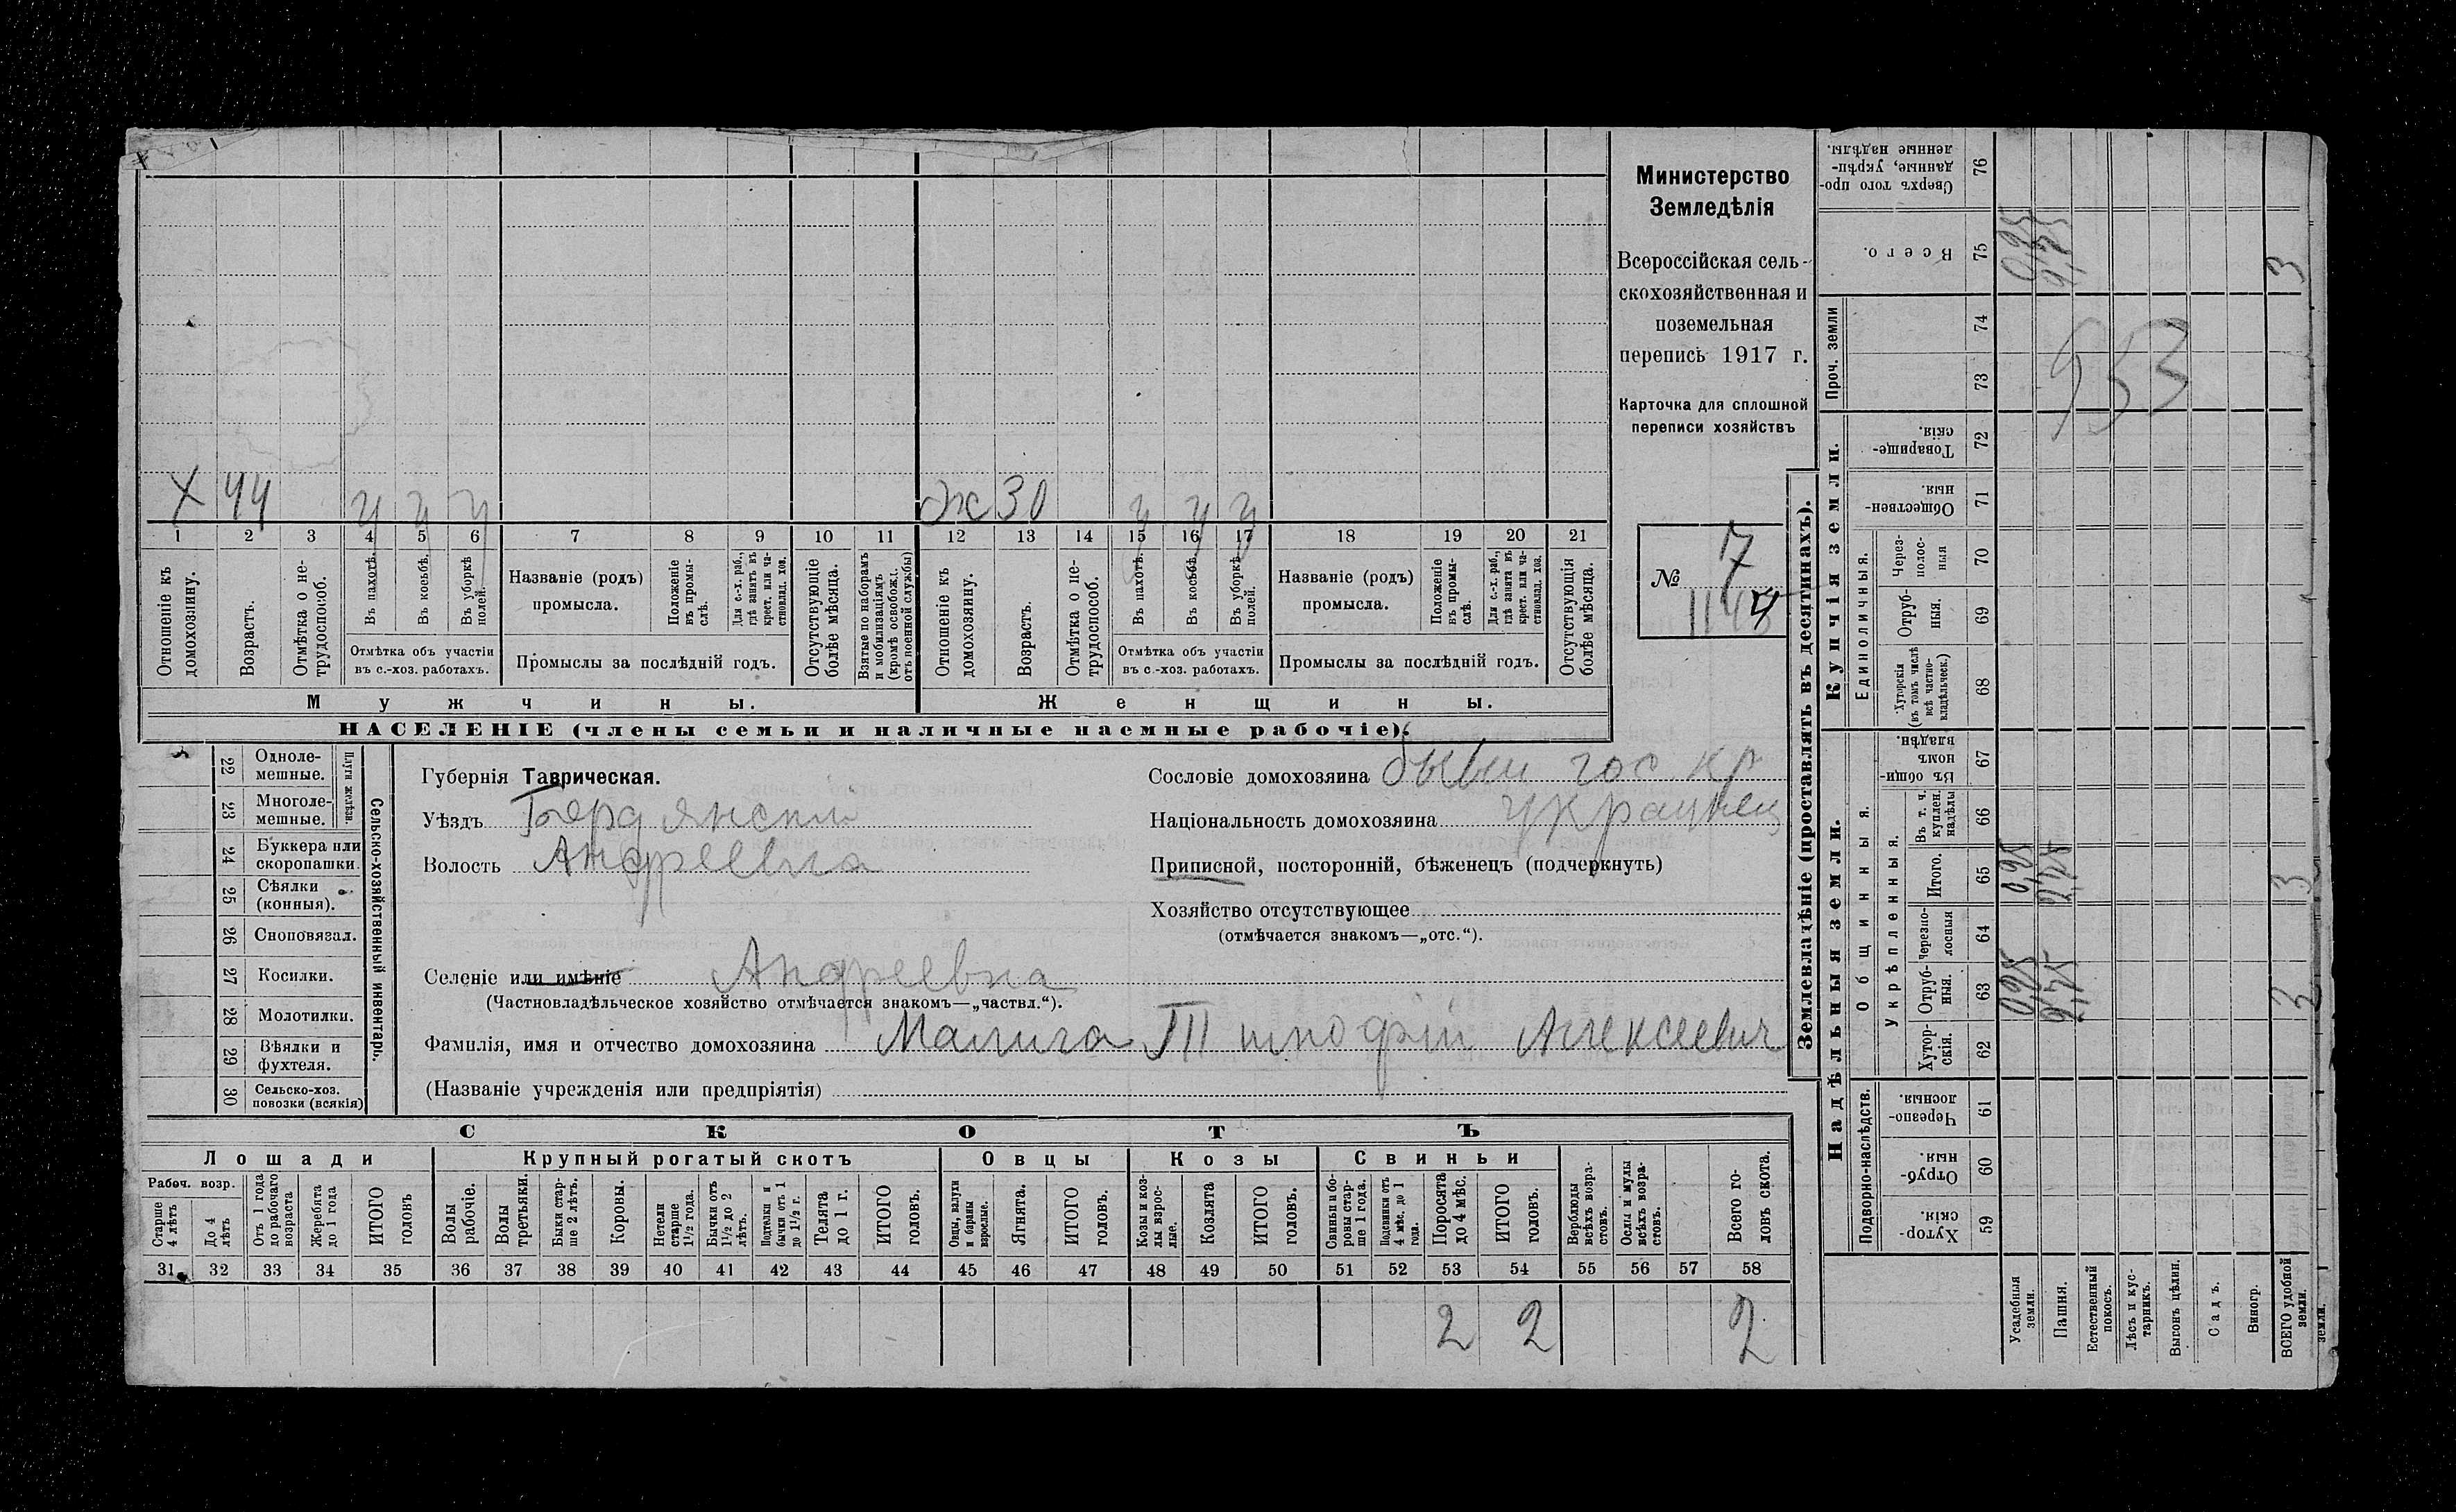 Министерство
Земледѣлія
Всероссійская сель-
скохозяйственная и
поземельная
перепись 1917 г.
Карточка для сплошной
переписи хозяйствъ
№ 7
X 44 ч ч ч ж 30 ч ч ч
1 2 3 4 5 6 7 8 9 10 11 12 13 14 15 16 17 18 19 20 21
Отношеніе къ домохозяину.
Возрастъ.
Отмѣтка о не-трудоспособ.
Въ пахотѣ.
Въ косьбѣ.
Въ уборкѣ полей.
Отмѣтка объ участіи
въ с.-хоз. работахъ.
Названіе (родъ)
промысла.
Положеніе въ промы-слѣ.
Для с.-х. раб., гдѣ занятъ въ крест. или ча-стновлад. хоз.
Промыслы за послѣдній годъ.
Отсутствующіе болѣе мѣсяца.
Взятые по наборамъ и мобилизаціямъ (кромѣ освобожд. отъ военной службы)
Отношеніе къ домохозяину.
Возрастъ.
Отмѣтка о не-трудоспособ.
Въ пахотѣ.
Въ косьбѣ.
Въ уборкѣ полей.
Отмѣтка объ участіи
въ с.-хоз. работахъ.
Названіе (родъ)
промысла.
Положеніе въ промы-слѣ.
Для с.-х. раб., гдѣ занята въ крест. или ча-стновлад. хоз.
Промыслы за послѣдній годъ.
Отсутствующія болѣе мѣсяца.
Мужчины.
Женщины.
НАСЕЛЕНІЕ (члены семьи и наличные наемные рабочіе).
22 Одноле-мешные.
23 Многоле-мешные.
Плуги желѣзн.
24 Буккера или скоропашки.
25 Сѣялки (конныя).
26 Сноповязал.
27 Косилки.
28 Молотилки.
29 Вѣялки и фухтеля.
30 Сельско-хоз. повозки (всякія)
Сельско-хозяйственный инвентарь.
Губернія Таврическая.
Уѣздъ Бердянскій
Волость Андреевка
Сословіе домохозяина бывш гос. кр
Національность домохозяина украинец
Приписной, посторонній, бѣженецъ (подчеркнуть)
Хозяйство отсутствующее
(отмѣчается знакомъ—„отс.“).
Селеніе или имѣніе Андреевка
(Частновладѣльческое хозяйство отмѣчается знакомъ—„частвл.“).
Фамилія, имя и отчество домохозяина Алексеевич
(Названіе учрежденія или предпріятія)
СКОТЪ
Лошади
Крупный рогатый скотъ
Овцы
Козы
Свиньи
Рабоч. возр.
Старше 4 лѣтъ
До 4 лѣтъ
Отъ 1 года до рабочаго возраста
Жеребята до 1 года
ИТОГО головъ
Волы рабочіе.
Волы третьяки.
Быки стар-ше 2 лѣтъ.
Коровы.
Нетели старше 1½ года.
Бычки отъ 1½ до 2 лѣтъ.
Подтелки и бычки отъ 1 до 1½ г.
Телята до 1 г.
ИТОГО головъ.
Овцы, валухи и бараны взрослые.
Ягнята.
ИТОГО головъ.
Козы и коз-лы взрос-лые.
Козлята
ИТОГО головъ.
Свиньи и бо-ровы стар-ше 1 года.
Подсвинки отъ 4 мѣс. до 1 года.
Поросята до 4 мѣс.
ИТОГО головъ.
Верблюды всѣхъ возра-стовъ.
Ослы и мулы всѣхъ возра-стовъ.
Всего го-ловъ скота.
31 32 33 34 35 36 37 38 39 40 41 42 43 44 45 46 47 48 49 50 51 52 53 54 55 56 57 58
2 2 2
Землевладѣніе (проставлять въ десятинахъ).
Купчія земли.
Надѣльныя земли.
Проч. земли
Единоличныя.
Общинныя.
Укрѣпленныя.
Подворно-наслѣдств.
Сверхъ того про-данные, укрѣп-ленные надѣлы. 76
Всего. 75
74
73
Товарище-скія. 72
Обществен-ныя. 71
Через-полос-ныя 70
Отруб-ныя. 69
Хуторскія (въ томъ числѣ всѣ частно-владѣльческ.) 68
Въ общи-номъ владѣн. 67
Въ т. ч. куплен. надѣлы 66
Итого. 65
Черезпо-лосныя 64
Отруб-ныя. 63
Хутор-скія. 62
Черезпо-лосныя 61
Отруб-ныя. 60
Хутор-скія. 59
Усадебныя земли.
Пашня.
Естественный покосъ.
Лѣсъ и кус-тарникъ.
Выгонъ цѣлин.
Садъ.
Виногр.
ВСЕГО удобной земли.
953
3
3
3